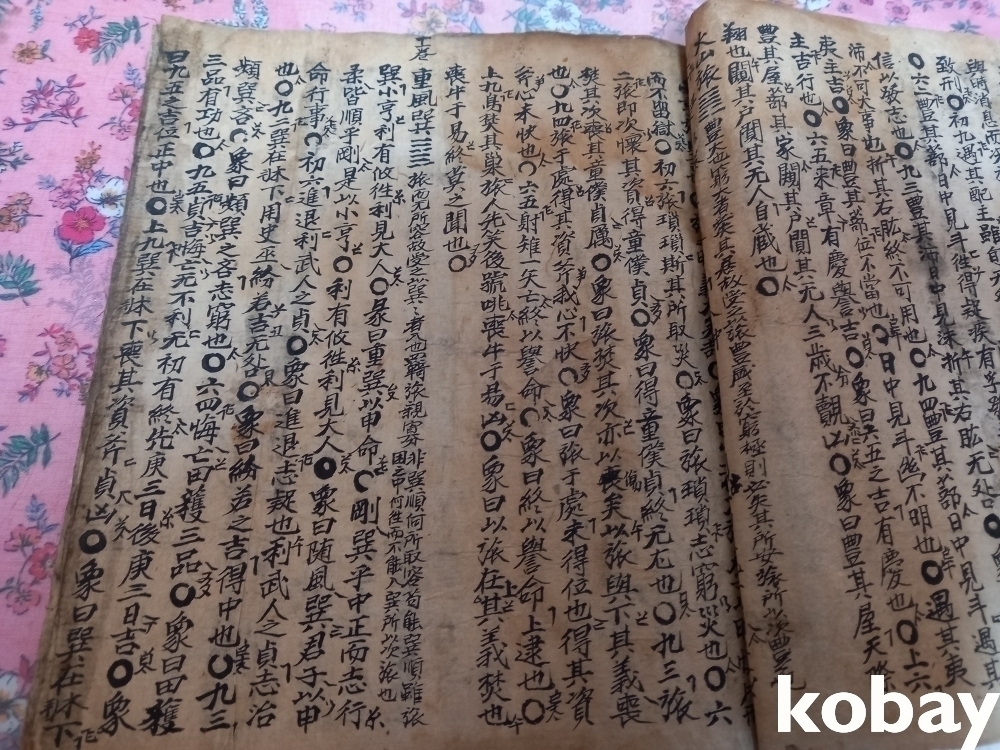 致刑○初九遇其配主雖
○六二豐其蔀日中見斗往得疑疾
信以發志也○九三豐其沛日中見沬折其右肱无咎○
沛不可大事也折其右肱終不可用也○九四豐其蔀日中見斗遇其夷
夷主吉○象曰豐其蔀位不當也日中見斗幽不明也○遇其夷
主吉行也○六五来章有慶譽吉○象曰六五之吉有慶也○上六
豐其屋蔀其家闚其戶闃其无人三歲不覿凶○象曰豐其屋天際
翔也闚其戶闃其无人自藏也○
火山旅
初六旅瑣瑣斯其所取災○象曰旅瑣瑣志窮災也○六
二旅即次懷其資得童僕貞○象曰得童僕貞終无尤也○九三旅
焚其次喪其童僕貞厲○象曰旅焚其次亦以喪矣以旅與下其義喪
也○九四旅于處得其資斧我心不快○象曰旅于處未得位也得其資
斧心未快也○六五射雉一矢亡終以譽命○象曰終以譽命上逮也○
上九鳥焚其巢旅人先笑後號咷喪牛于易凶○象曰以旅在其義焚也
喪牛于易終莫之聞也○
重風巽
巽小亨利有攸往利見大人○彖曰重巽以申命○剛巽乎中正而志行
柔皆順乎剛是以小亨○利有攸往利見大人○象曰随風巽君子以申
命行事○初六進退利武人之貞○象曰進退志疑也利武人之貞志治
也○九二巽在牀下用史巫紛若吉无咎○象曰紛若之吉得中也○九三
頻巽吝○象曰頻巽之吝志窮也○六四悔亡田獲三品○象曰田獲
三品有功也○九五貞吉悔亡无不利无初有終先庚三日後庚三日吉○象
曰九五之吉位正中也○上九巽在牀下喪其資斧貞凶○象曰巽在牀下
kobay